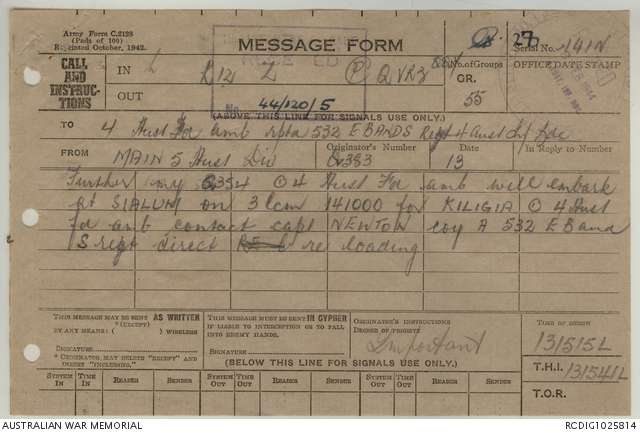 Army Form C.2128
(Pads of 100)
Reprinted October, 1942.
MESSAGE FORM
27
Serial No. 141N
CALL
AND
INSTRUC-
TIONS
IN
R12 Z
P QVR3
No. of Groups
GR.
55
OFFICE DATE STAMP
OUT
No. 44/120/5
(ABOVE THIS LINE FOR SIGNALS USE ONLY.)
TO
4 Aust Fd amb rptd 532 E BANDS Regt 4 Aust Inf Bde
FROM
MAIN 5 Aust Div
Originator's Number
G353
Date
13
In Reply to Number
Further my G354 O 4 Aust Fd amb will embark
at SIALUM on 3 lcm 141000 for KILIGIA O 4 Aust
Fd amb contact capt NEWTON coy A 532 E Band
S regt direct re loading
THIS MESSAGE MAY BE SENT AS WRITTEN
* (EXCEPT)
BY ANY MEANS ( ) WIRELESS
SIGNATURE
* ORIGINATOR MAY DELETE "EXCEPT" AND
INSERT "INCLUDING."
THIS MESSAGE MUST BE SENT IN CYPHER
IF LIABLE TO INTERCEPTION OR TO FALL
INTO ENEMY HANDS.
SIGNATURE
ORIGINATOR'S INSTRUCTIONS
DEGREE OF PRIORITY
Important
TIME OF ORIGIN
131515L
T.H.I. 131541L
T.O.R.
(BELOW THIS LINE FOR SIGNALS USE ONLY.)
SYSTEM IN TIME IN READER SENDER SYSTEM OUT TIME OUT READER SENDER SYSTEM OUT TIME OUT READER SENDER
AUSTRALIAN WAR MEMORIAL
RCDIG1025814